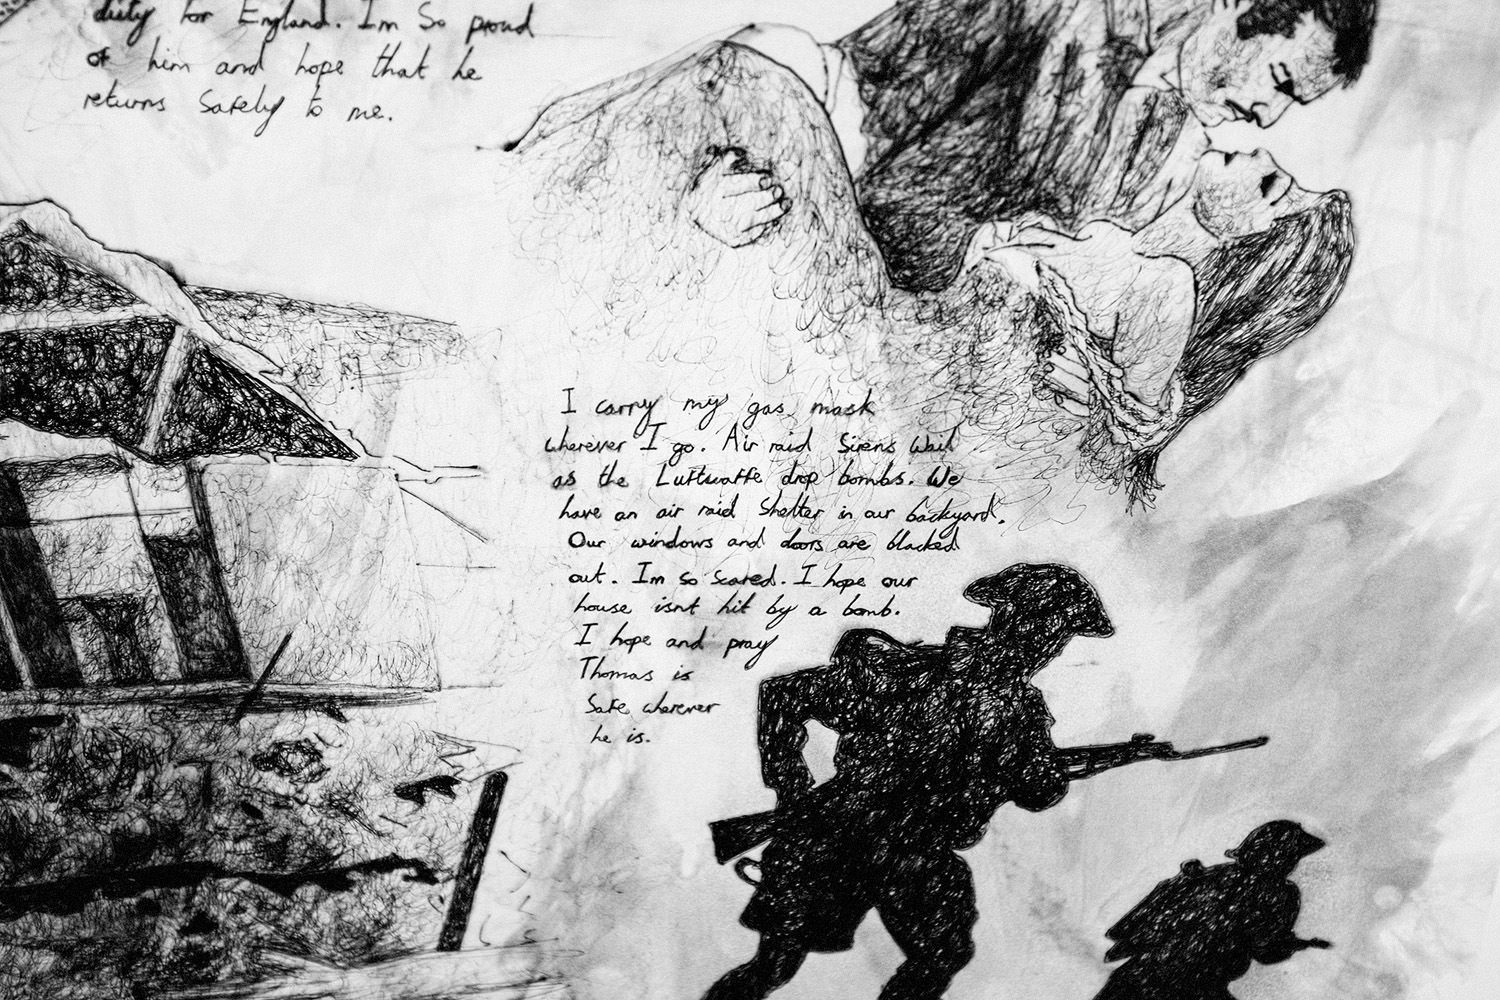 duty for England. Im So proud
of him and hope that he
returns Safely to me.
I carry my gas mask
wherever I go. Air raid Sirens Wail
as the Luftwaffe drop bombs. We
have an air raid Shelter in our backyard.
Our windows and doors are blacked
out. Im so scared. I hope our
house isnt hit by a bomb.
I hope and pray
Thomas is
Safe wherever
he is.